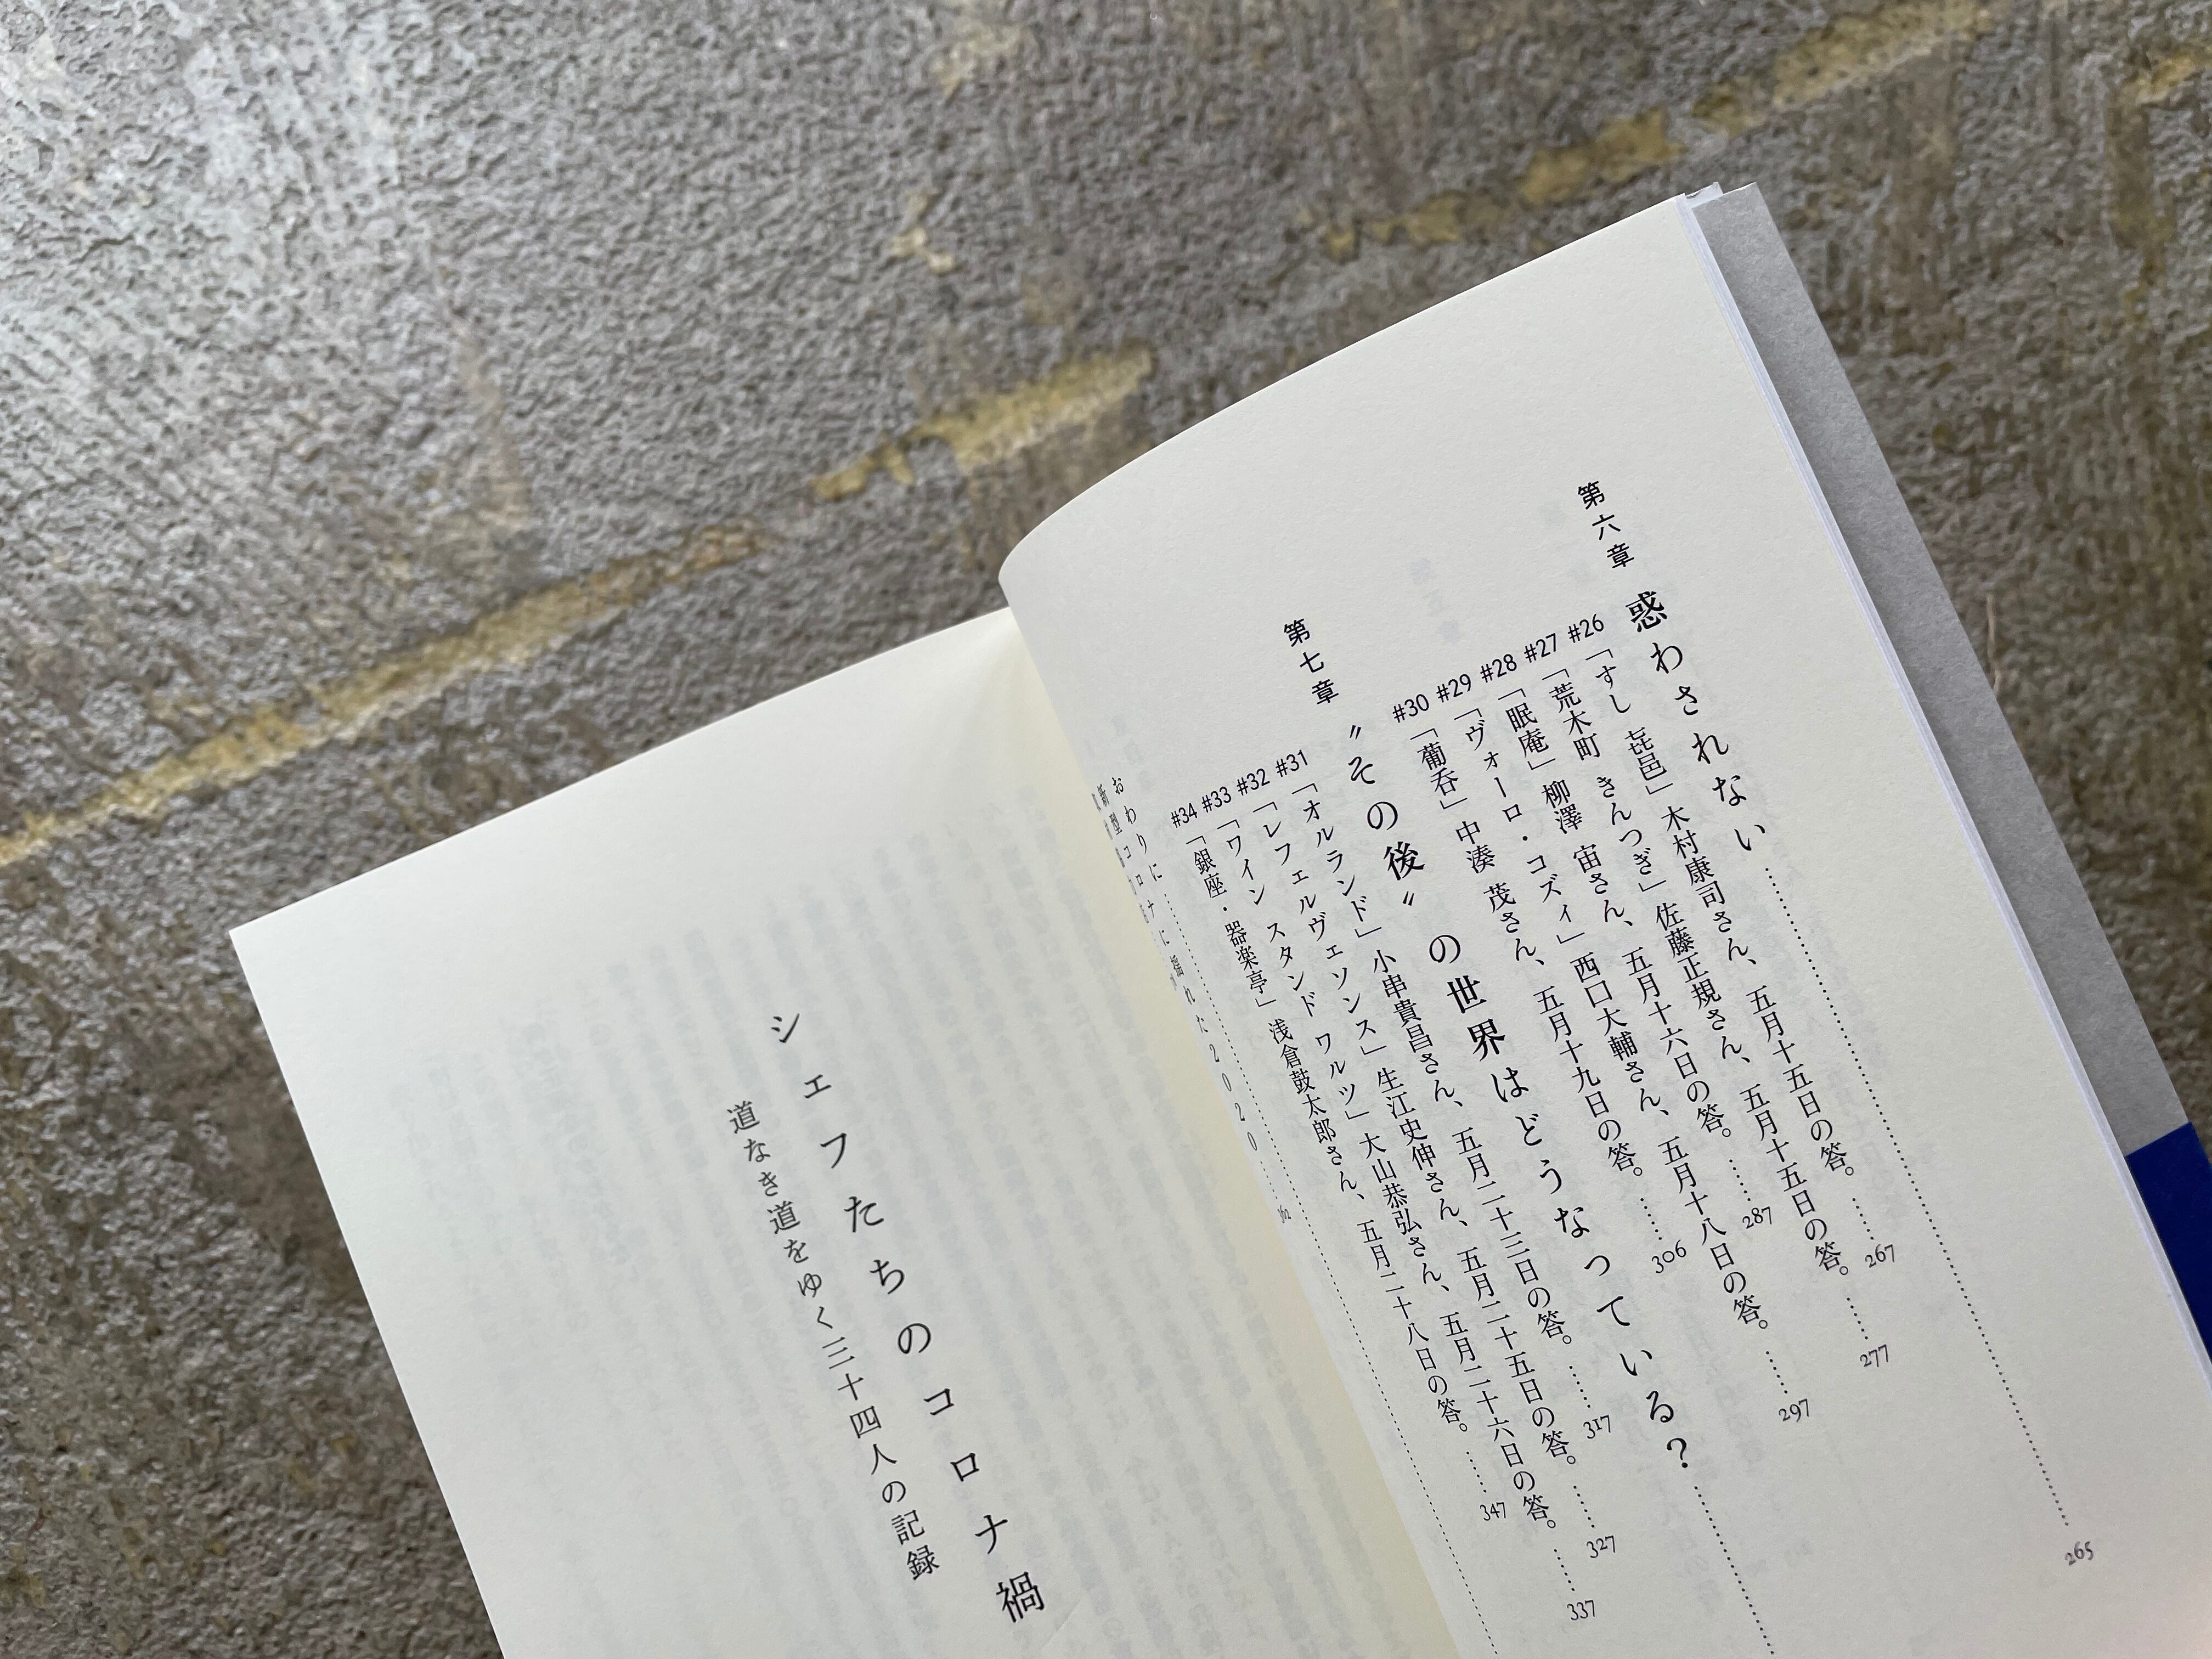 第六章 惑わされない…………265
#26「すし 㐂邑」木村康司さん、五月十五日の答。……267
#27「荒木町 きんつぎ」佐藤正規さん、五月十五日の答。……277
#28「眠庵」柳澤 宙さん、五月十六日の答。……287
#29「ヴォーロ・コズィ」西口大輔さん、五月十八日の答。……297
#30「葡呑」中湊 茂さん、五月十九日の答。……306
第七章 〝その後〟の世界はどうなっている?…………
#31「オルランド」小串貴昌さん、五月二十三日の答。……317
#32「レフェルヴェソンス」生江史伸さん、五月二十五日の答。……327
#33「ワイン スタンド ワルツ」大山恭弘さん、五月二十六日の答。……337
#34「銀座・器楽亭」浅倉鼓太郎さん、五月二十八日の答。……347
おわりに…………
新型コロナに揺れた2020……362
シェフたちのコロナ禍
道なき道をゆく三十四人の記録